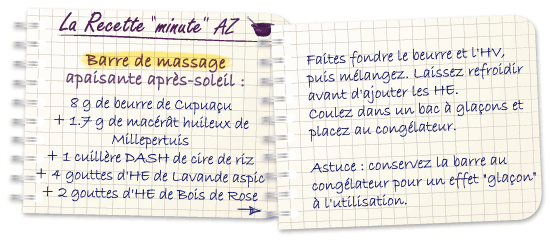 La Recette "minute" AZ
Barre de massage
apaisante après-soleil :
8 g de beurre de Cupuaçu
+ 1.7 g de macérât huileux de
Millepertuis
+ 1 cuillère DASH de cire de riz
+ 4 gouttes d'HE de Lavande aspic
+ 2 gouttes d'HE de Bois de Rose
Faites fondre le beurre et l'HV,
puis mélangez. Laissez refroidir
avant d'ajouter les HE.
Coulez dans un bac à glaçons et
placez au congélateur.
Astuce : conservez la barre au
congélateur pour un effet "glaçon"
à l'utilisation.